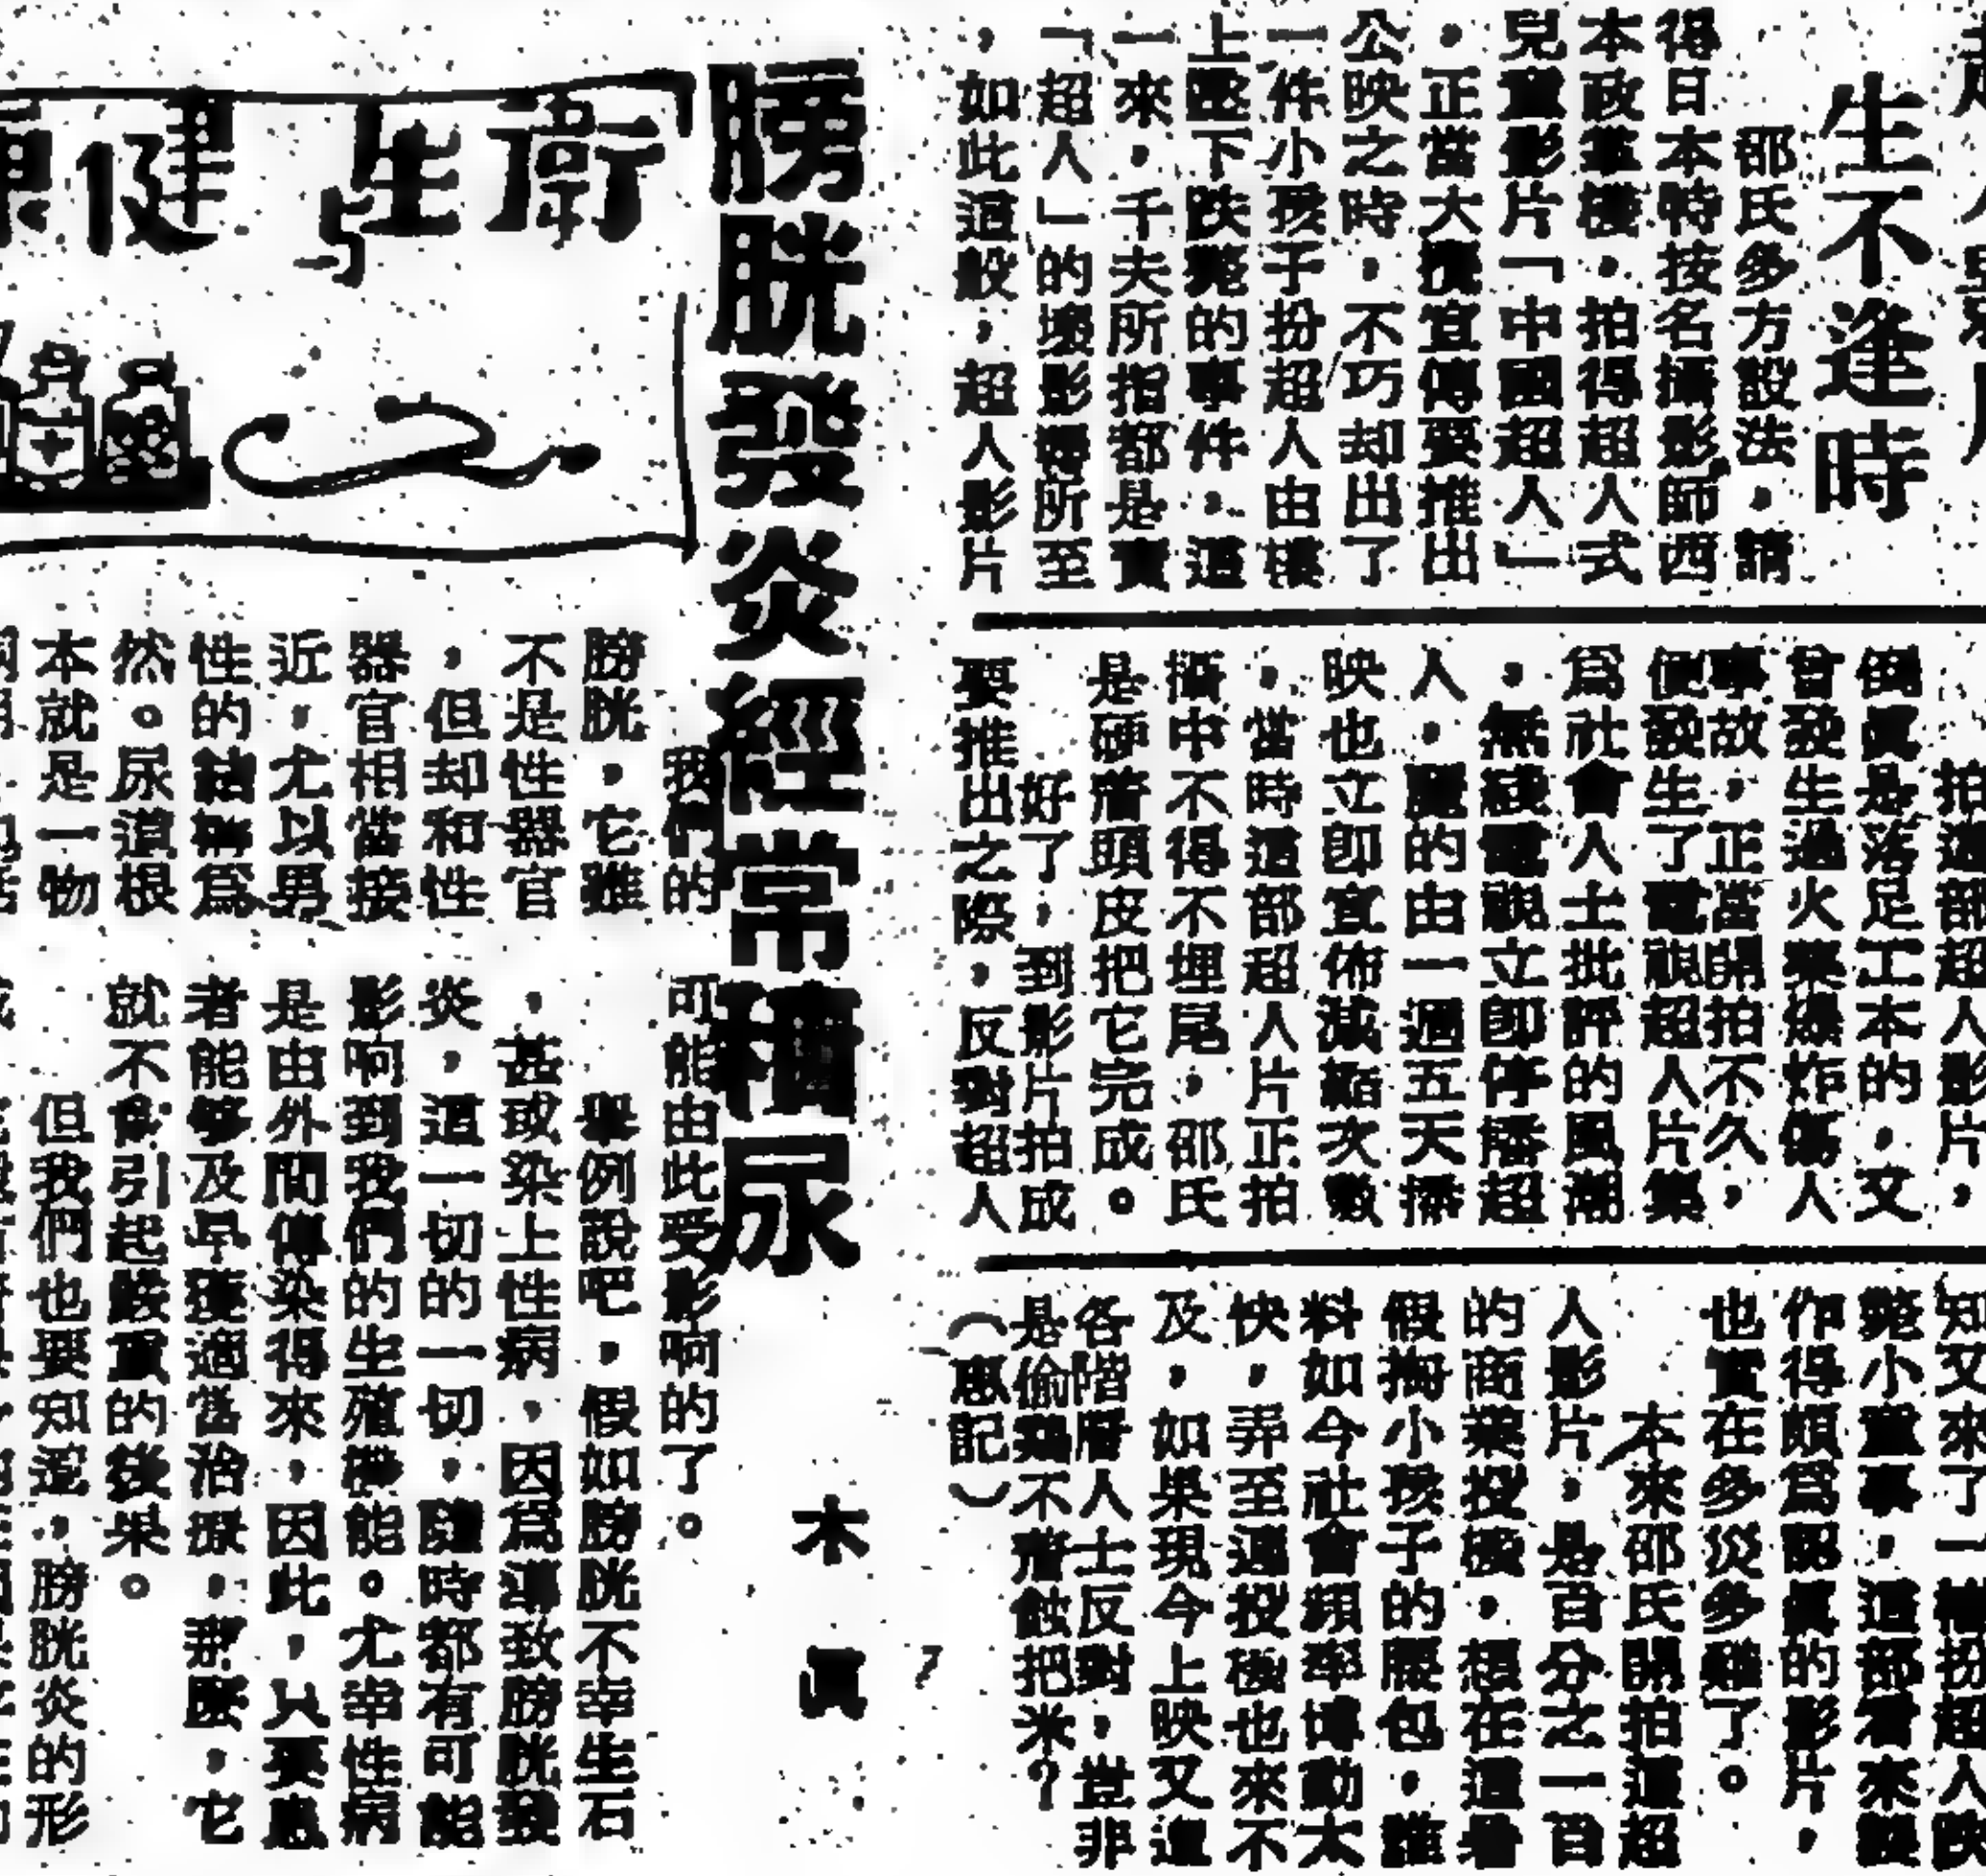 生不逢時
邵氏多方設法，請
得日本特按名攝影師西
本政機，拍得超人式
兒童影片「中國超人」
，正當大攪宣傳要推出
公映之時，不巧却出了
一件小孩子扮超人由樓
上墮下跌斃的事件，這
一來，千夫所指都是賣
「超人」的壞影響所至
，如此這般，超人影片
拍這部超人影片，
倒眞是落足工本的，文
曾發生過火藥爆炸傷人
事故，正當開拍不久，
便發生了電視超人片集
爲社會人士批評的風潮
，無綫電視立卽停播超
人，麗的由一週五天播
映也立卽宣佈減縮次數
，當時這部超人片正拍
攝中不得不埋尾，邵氏
是硬着頭皮把它完成。
好了，到影片拍成
要推出之際，反對超人
知又來了一樁扮超人跌
斃小童事，這部看來製
作得頗爲認眞的影片，
也實在多災多難了。
本來邵氏開拍這超
人影片，是百分之一百
的商業投機，想在這着
假掏小孩子的腰包，誰
料如今社會頻率博動太
快，弄至連投機也來不
及，如果現今上映又遭
各階層人士反對，豈非
是偷鷄不着蝕把米？
（惠記）
膀胱發炎經常積尿
木眞
衛生與健康
我們的
膀胱，它雖
不是性器官
，但却和性
器官相當接
近，尤以男
性的結構爲
然。尿道根
本就是一物
可能由此受影响的了。
舉例說吧，假如膀胱不幸生石
，甚或染上性病，因爲導致膀胱發
炎，這一切的一切，隨時都有可能
影响到我們的生殖機能。尤幸性病
是由外間傳染得來，因此，只要患
者能够及早獲適當治療，那麽，它
就不會引起嚴重的後果。
但我們也要知道，膀胱炎的形